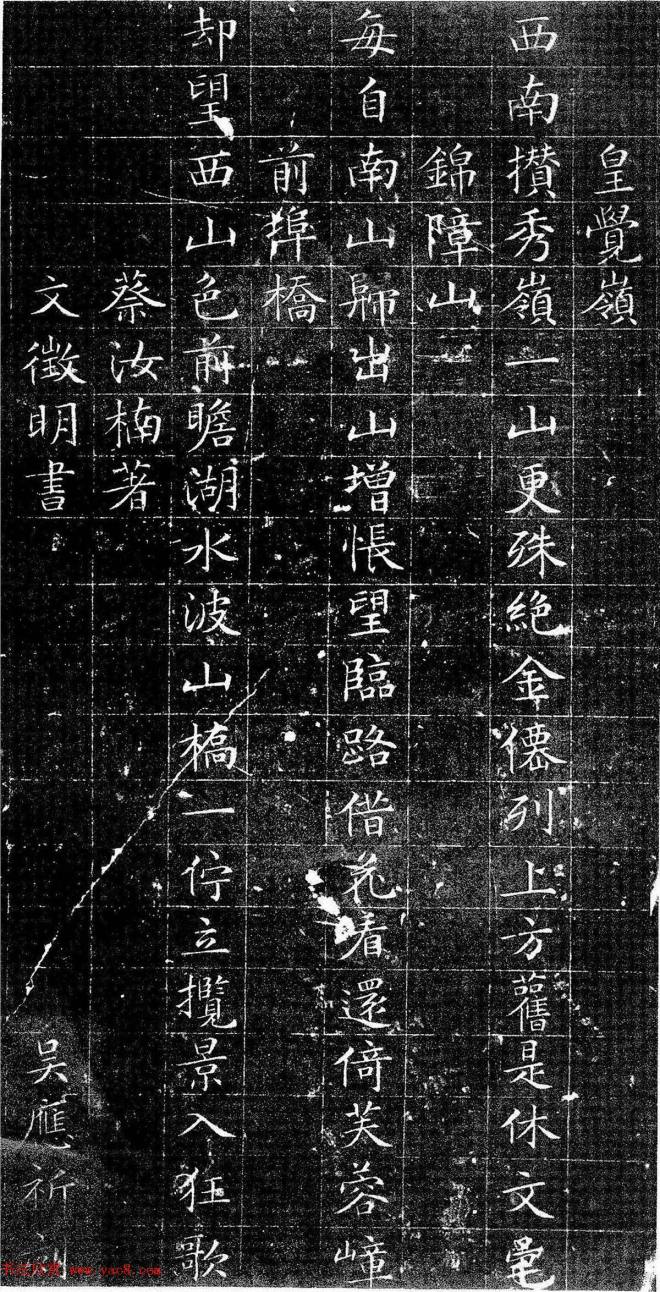 皇覺嶺
西南攅秀嶺一山更殊絶金德列上方舊是休文宅
錦障山
每自南山歸出山增悵望臨路借花看還倚芙蓉嶂
前埠橋
却望西山色前瞻湖水波山橋一佇立攬景入狂歌
蔡汝楠著
文徵明書
吴應祈刻
www.yac8.com